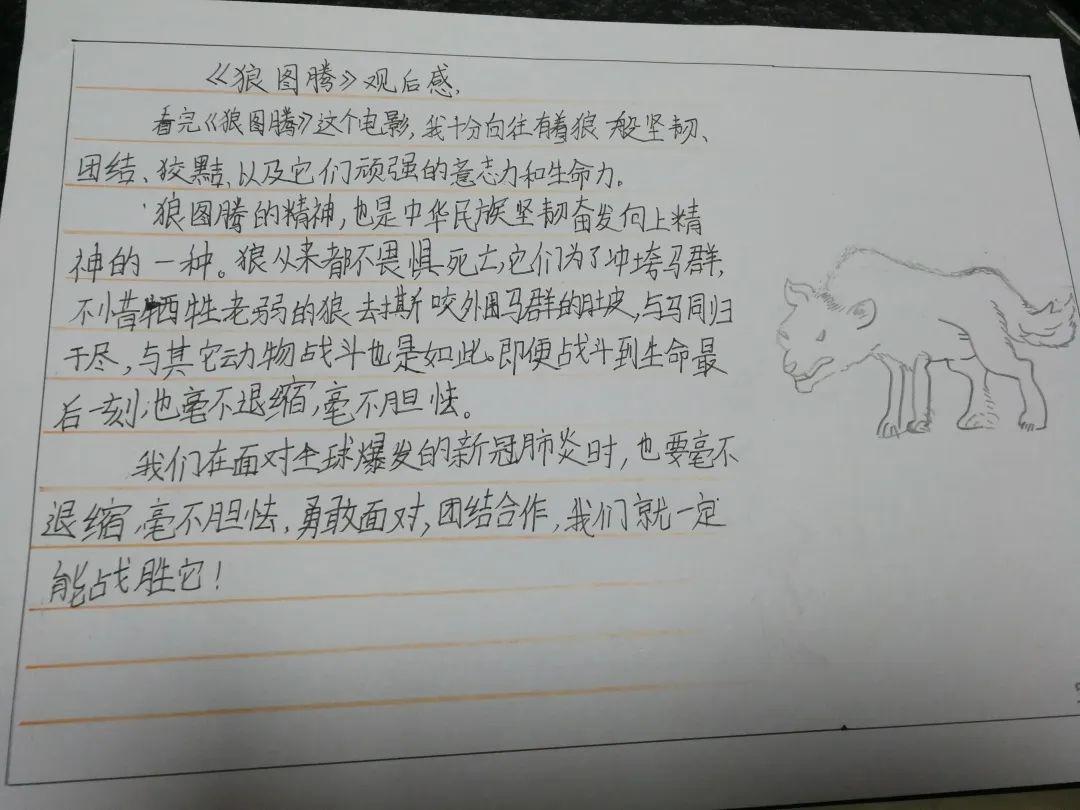 《狼图腾》观后感.
看完《狼图腾》这个电影,我十分向往有着狼一般坚韧、
团结、狡黠、以及它们顽强的意志力和生命力。
狼图腾的精神,也是中华民族坚韧奋发向上精
神的一种。狼从来都不畏惧死亡,它们为了冲垮马群,
不惜牺牲老弱的狼去撕咬外围马群的肚皮,与马同归
于尽,与其它动物战斗也是如此。即便战斗到生命最
后一刻,也毫不退缩,毫不胆怯。
我们在面对全球爆发的新冠肺炎时,也要毫不
退缩,毫不胆怯,勇敢面对,团结合作,我们就一定
能战胜它!